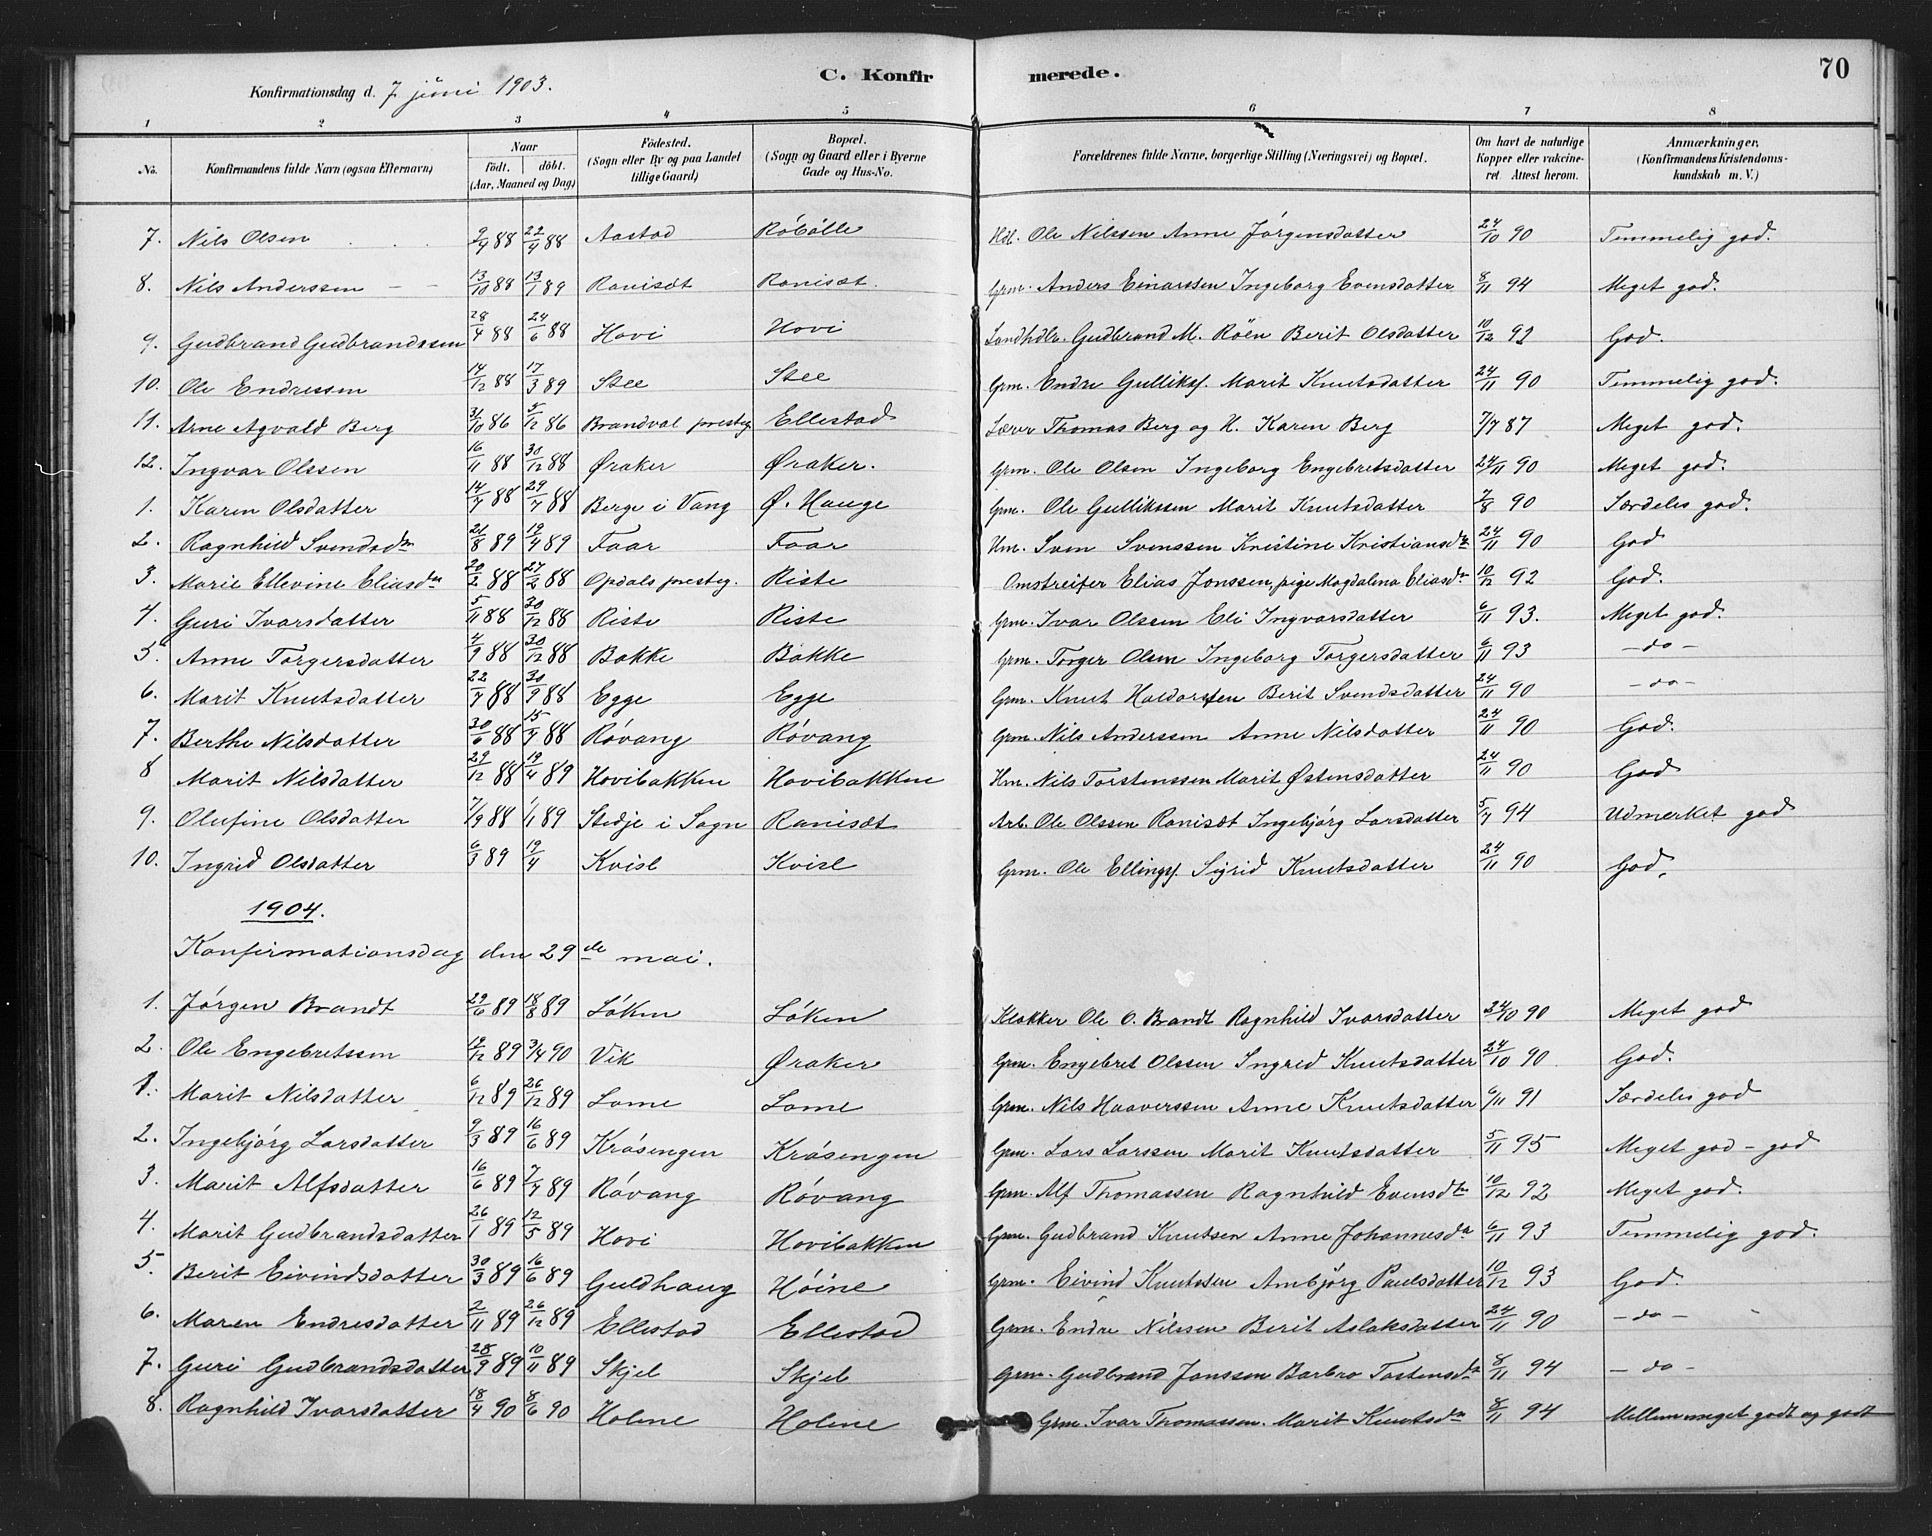 C. Konfirmerede. 70
Konfirmationsdag d. 7 juni 1903.
1 2 3 4 5 6 7 8
No. Konfirmandens fulde Navn (ogsaa Efternavn) Naar født. døbt. (Aar, Maaned og Dag) Fødested. (Sogn eller By og paa Landet tillige Gaard) Bopæl. (Sogn og Gaard eller i Byerne Gade og Hus-No. Forældrenes fulde Navne, borgerlige Stilling (Næringsvei) og Bopæl. Om havt de naturlige Kopper eller vakcineret Attest herom. Anmærkninger, (Konfirmandens Kristendomskundskab m. V.)
7. Nils Olsen 9/9 88 22/9 88 Aastad Robølle Hdl. Ole Nilssen Anne Jørgensdatter 24/10 90 Temmelig god.
8. Nils Anderssen 13/10 88 13/1 89 Ranisæt Ranisæt. Grm. Anders Einarssen Ingeborg Evensdatter 8/11 94 Meget god.
9. Gudbrand Gudbrandssen 28/4 88 24/6 88 Hovi Hovi Landhdlr. Gudbrand M. Røen Berit Olsdatter 10/12 92 God.
10. Ole Endressen 14/12 88 17/3 89 Stee Stee Grm. Endre Gulliks. Marit Knutsdatter 24/11 90 Temmelig god.
11. Arne Agvald Berg 31/10 86 5/12 86 Brandval presteg. Ellestad Lærer Thomas Berg og H. Karen Berg 7/7 87 Meget god.
12. Ingvar Olssen 16/11 88 30/12 88 Øraker Øraker. Grm. Ole Olsen Ingeborg Engebretsdatter 24/11 90 Meget god.
1. Karen Olsdatter 14/7 88 29/7 88 Berge i Vang Ø. Hauge Grm. Ole Gullikssen Marit Knutsdatter 7/8 90 Særdeles god.
2. Ragnhild Svendsdtr 21/8 89 19/4 89 Faar Faar Um. Sven Svenssen Kristine Kristiansdtr 24/11 90 God
3. Marie Ellevine Eliasdtr 20/2 88 27/2 88 Opdals presteg. Riste Omstreifer Elias Jonssen, pige Magdalena Eliasdtr 10/12 92 God.
4. Guri Ivarsdatter 5/11 88 30/12 88 Riste Riste Grm. Ivar Olssen Eli Ingvarsdatter 6/11 93. Meget god.
5. Anne Torgersdatter 4/9 88 30/12 88 Bakke Bakke Grm. Torger Olsen Ingeborg Torgersdatter 6/11 93 - do -
6. Marit Knutsdatter 22/7 88 30/9 88 Egge Egge Grm. Knut Haldorssen Berit Svendsdatter 24/11 90 - do -
7. Berthe Nilsdatter 30/6 88 15/7 88 Røvang Røvang Grm. Nils Anderssen Anne Nilsdatter 24/11 90 God.
8 Marit Nilsdatter 29/12 88 19/4 89 Hovibakken Hovibakken Hm. Nils Torstenssen Marit Østensdatter 24/11 90 God
9. Olufine Olsdatter 7/9 88 1/11 89 Stedje i Sogn Ranisæt Arb. Ole Olssen Ranisæt Ingebjørg Larsdatter 5/7 94 Udmerket god
10. Ingrid Olsdatter 6/3 89 19/4 Kvisl Kvisl Grm. Ole Ellings. Sigrid Knutsdatter 24/11 90 God.
1904.
Konfirmationsdag den 29de mai.
1. Jørgen Brandt 29/6 89 18/8 89 Løken Løken Klokker Ole O. Brandt Ragnhild Ivarsdatter 24/10 90 Meget god
2. Ole Engebretssen 19/12 89 3/4 90 Vik Øraker Grm. Engebret Olssen Ingrid Knutsdatter 24/10 90 God.
1. Marit Nilsdatter 6/12 89 26/12 89 Lome Lome Grm. Nils Haaverssen Anne Knutsdatter 6/11 91 Særdeles god
2. Ingebjørg Larsdatter 9/3 89 16/6 89 Krøsengen Krøsengen Grm. Lars Larssen Marit Knutsdatter 5/11 95 Meget god - god
3. Marit Alfsdatter 16/6 89 7/7 89 Røvang Røvang Grm. Alf Thomassen Ragnhild Evensdtr 10/12 92 Meget god.
4. Marit Gudbrandsdatter 26/1 89 12/5 89 Hovi Hovibakken Grm. Gudbrand Knutsen Anne Johannesdtr 6/11 93 Temmelig god.
5. Berit Eivindsdatter 30/3 89 16/6 89 Guldhaug Høine Grm. Eivind Knutssen Ambjørg Paulsdatter 10/12 93 God.
6. Maren Endresdatter 2/11 89 26/12 89 Ellestad Ellestad Grm. Endre Nilssen Berit Aslaksdatter 24/11 90 - do -
7. Guri Gudbrandsdatter 28/9 89 10/11 89 Skjel Skjel Grm. Gudbrand Jonssen Barbro Tostensdtr 8/11 94 - do -
8. Ragnhild Ivarsdatter 18/4 90 8/6 90 Holme Holme Grm. Ivar Thomassen. Marit Knutsdtr 8/11 94 Mellem meget godt og godt